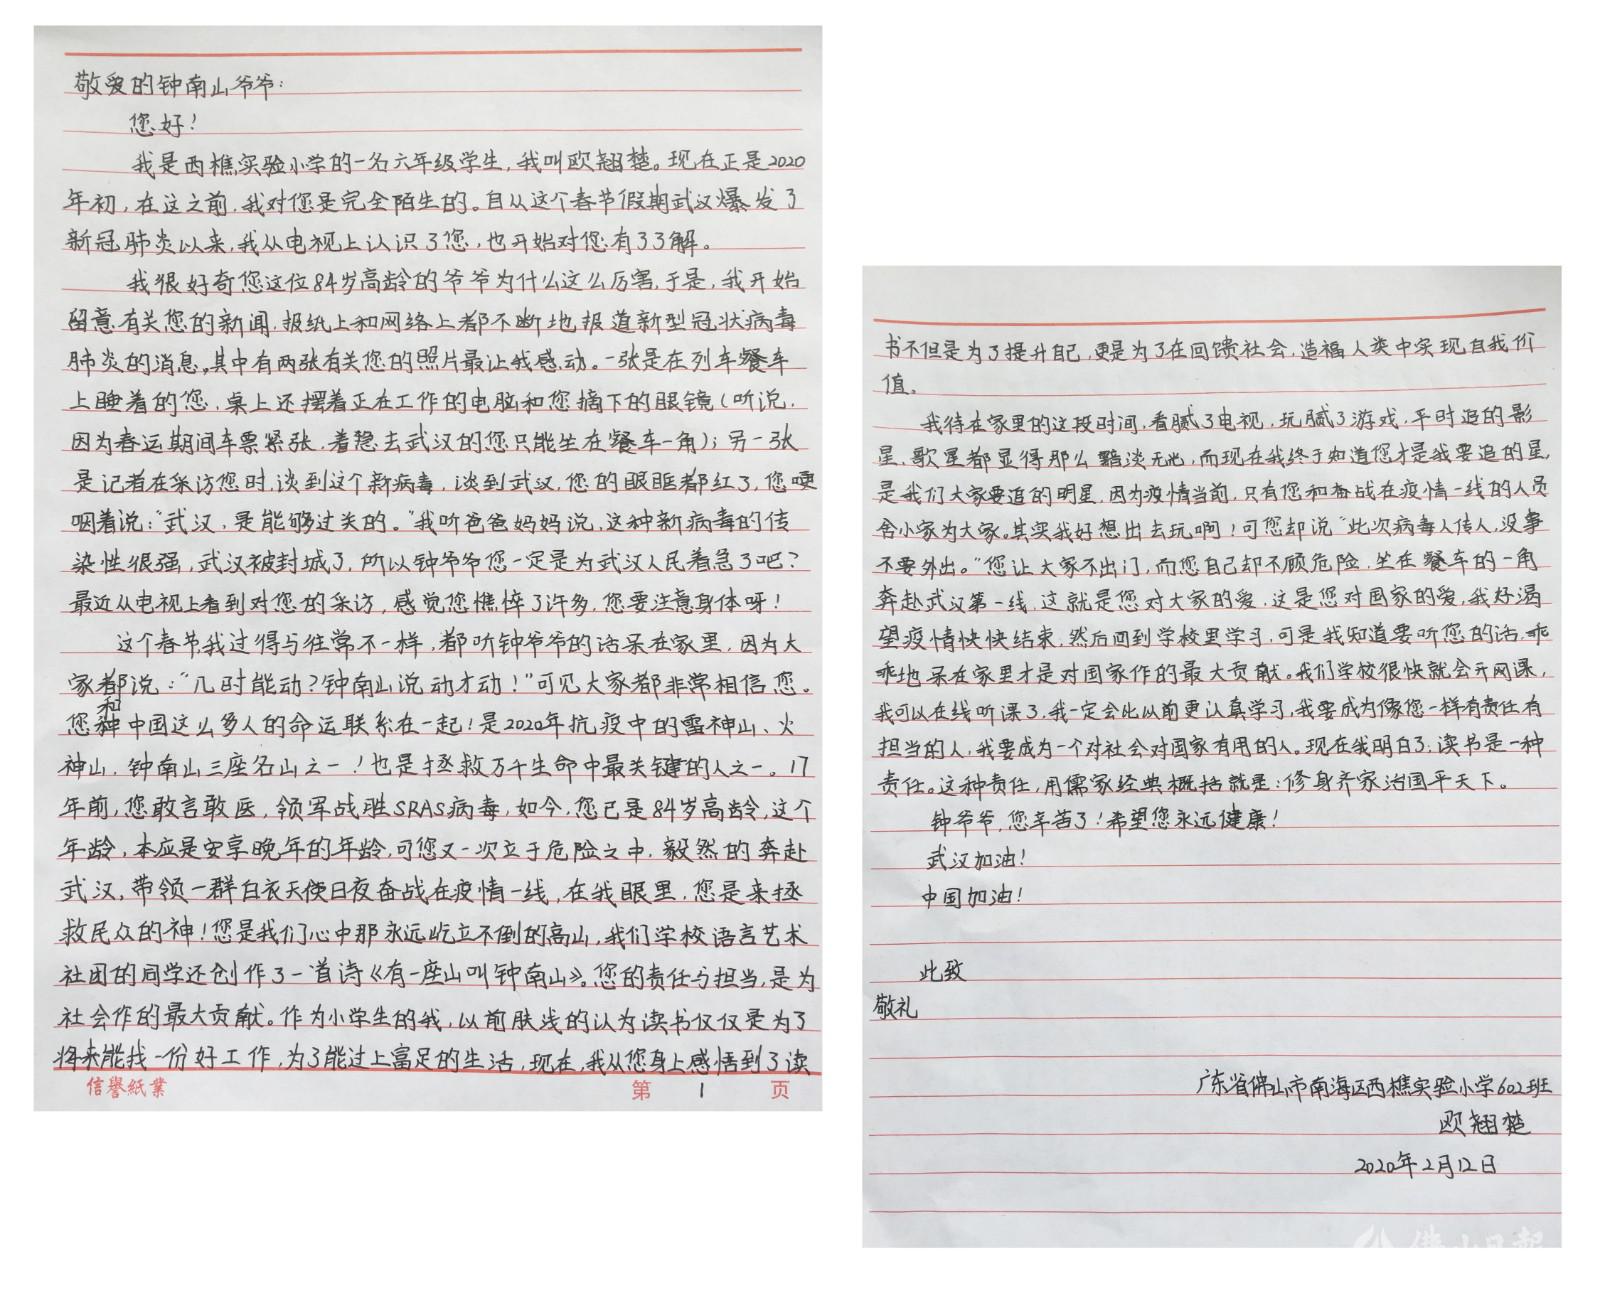 敬爱的钟南山爷爷：
您好！
我是西樵实验小学的一名六年级学生，我叫欧翘楚。现在正是2020
年初，在这之前，我对您是完全陌生的。自从这个春节假期武汉爆发了
新冠肺炎以来，我从电视上认识了您，也开始对您有了了解。
我很好奇您这位84岁高龄的爷爷为什么这么厉害，于是，我开始
留意有关您的新闻，报纸上和网络上都不断地报道新型冠状病毒
肺炎的消息，其中有两张有关您的照片最让我感动。一张是在列车餐车
上睡着的您，桌上还摆着正在工作的电脑和您摘下的眼镜（听说，
因为春运期间车票紧张，着急去武汉的您只能坐在餐车一角）；另一张
是记者在采访您时，谈到这个新病毒，谈到武汉，您的眼眶都红了，您哽
咽着说：“武汉，是能够过关的。”我听爸爸妈妈说，这种新病毒的传
染性很强，武汉被封城了，所以钟爷爷您一定是为武汉人民着急了吧？
最近从电视上看到对您的采访，感觉您憔悴了许多，您要注意身体呀！
这个春节，我过得与往常不一样，都听钟爷爷的话呆在家里，因为大
家都说：“几时能动？钟南山说动才动！”可见大家都非常相信您。
您和中国这么多人的命运联系在一起！是2020年抗疫中的雷神山、火
神山，钟南山三座名山之一！也是拯救万千生命中最关键的人之一。17
年前，您敢言敢医，领军战胜SRAS病毒，如今，您已是84岁高龄，这个
年龄，本应是安享晚年的年龄，可您又一次立于危险之中，毅然的奔赴
武汉，带领一群白衣天使日夜奋战在疫情一线，在我眼里，您是来拯
救民众的神！您是我们心中那永远屹立不倒的高山，我们学校语言艺术
社团的同学还创作了一首诗《有一座山叫钟南山》。您的责任与担当，是为
社会作的最大贡献。作为小学生的我，以前肤浅的认为读书仅仅是为了
将来能找一份好工作，为了能过上富足的生活，现在，我从您身上感悟到了读
信誉紙業 第 1 页
书不但是为了提升自己，更是为了在回馈社会，造福人类中实现自我价
值。
我待在家里的这段时间，看腻了电视，玩腻了游戏，平时追的影
星，歌星都显得那么黯淡无光，而现在我终于知道您才是我要追的星，
是我们大家要追的明星，因为疫情当前，只有您和奋战在疫情一线的人员
舍小家为大家。其实我好想出去玩啊！可您却说“此次病毒人传人，没事
不要外出。”您让大家不出门，而您自己却不顾危险，坐在餐车的一角
奔赴武汉第一线，这就是您对大家的爱，这是您对国家的爱，我好渴
望疫情快快结束，然后回到学校里学习，可是我知道要听您的话，乖
乖地呆在家里才是对国家作的最大贡献。我们学校很快就会开网课，
我可以在线听课了，我一定会比以前更认真学习，我要成为像您一样有责任有
担当的人，我要成为一个对社会对国家有用的人。现在我明白了，读书是一种
责任。这种责任，用儒家经典概括就是：修身齐家治国平天下。
钟爷爷，您辛苦了！希望您永远健康！
武汉加油！
中国加油！
此致
敬礼
广东省佛山市南海区西樵实验小学602班
欧翘楚
2020年2月12日
佛山日报